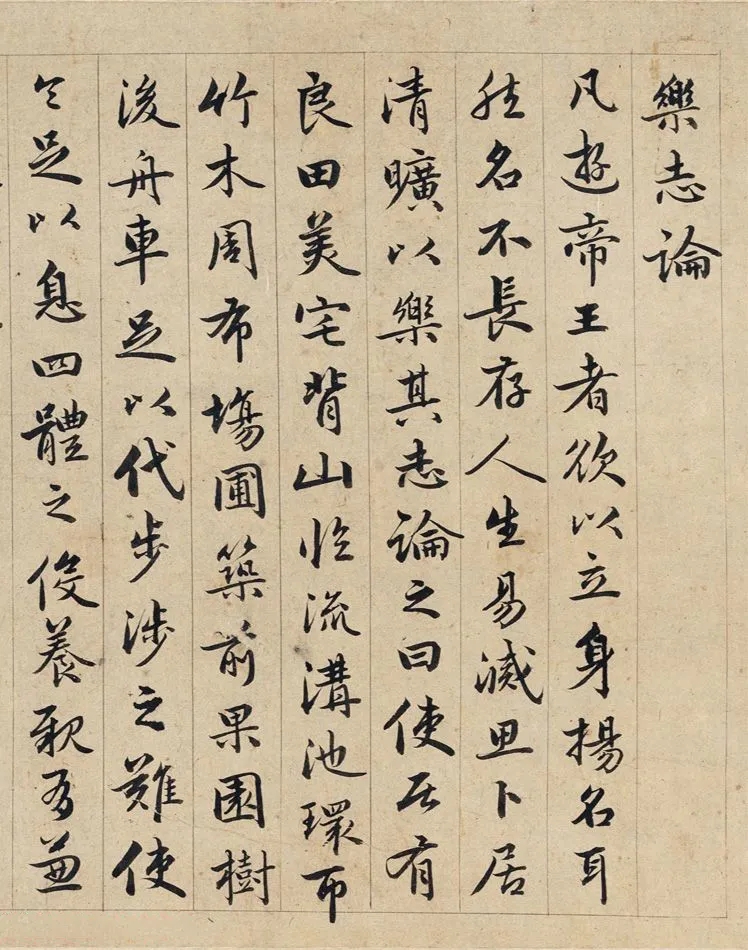 樂志論
凡遊帝王者欲以立身揚名耳
然名不長存人生易滅思卜居
清曠以樂其志論之曰使居有
良田美宅背山臨流溝池環帀
竹木周布場圃築前果園樹
後舟車足以代步涉之難使
令足以息四體之役養親有兼